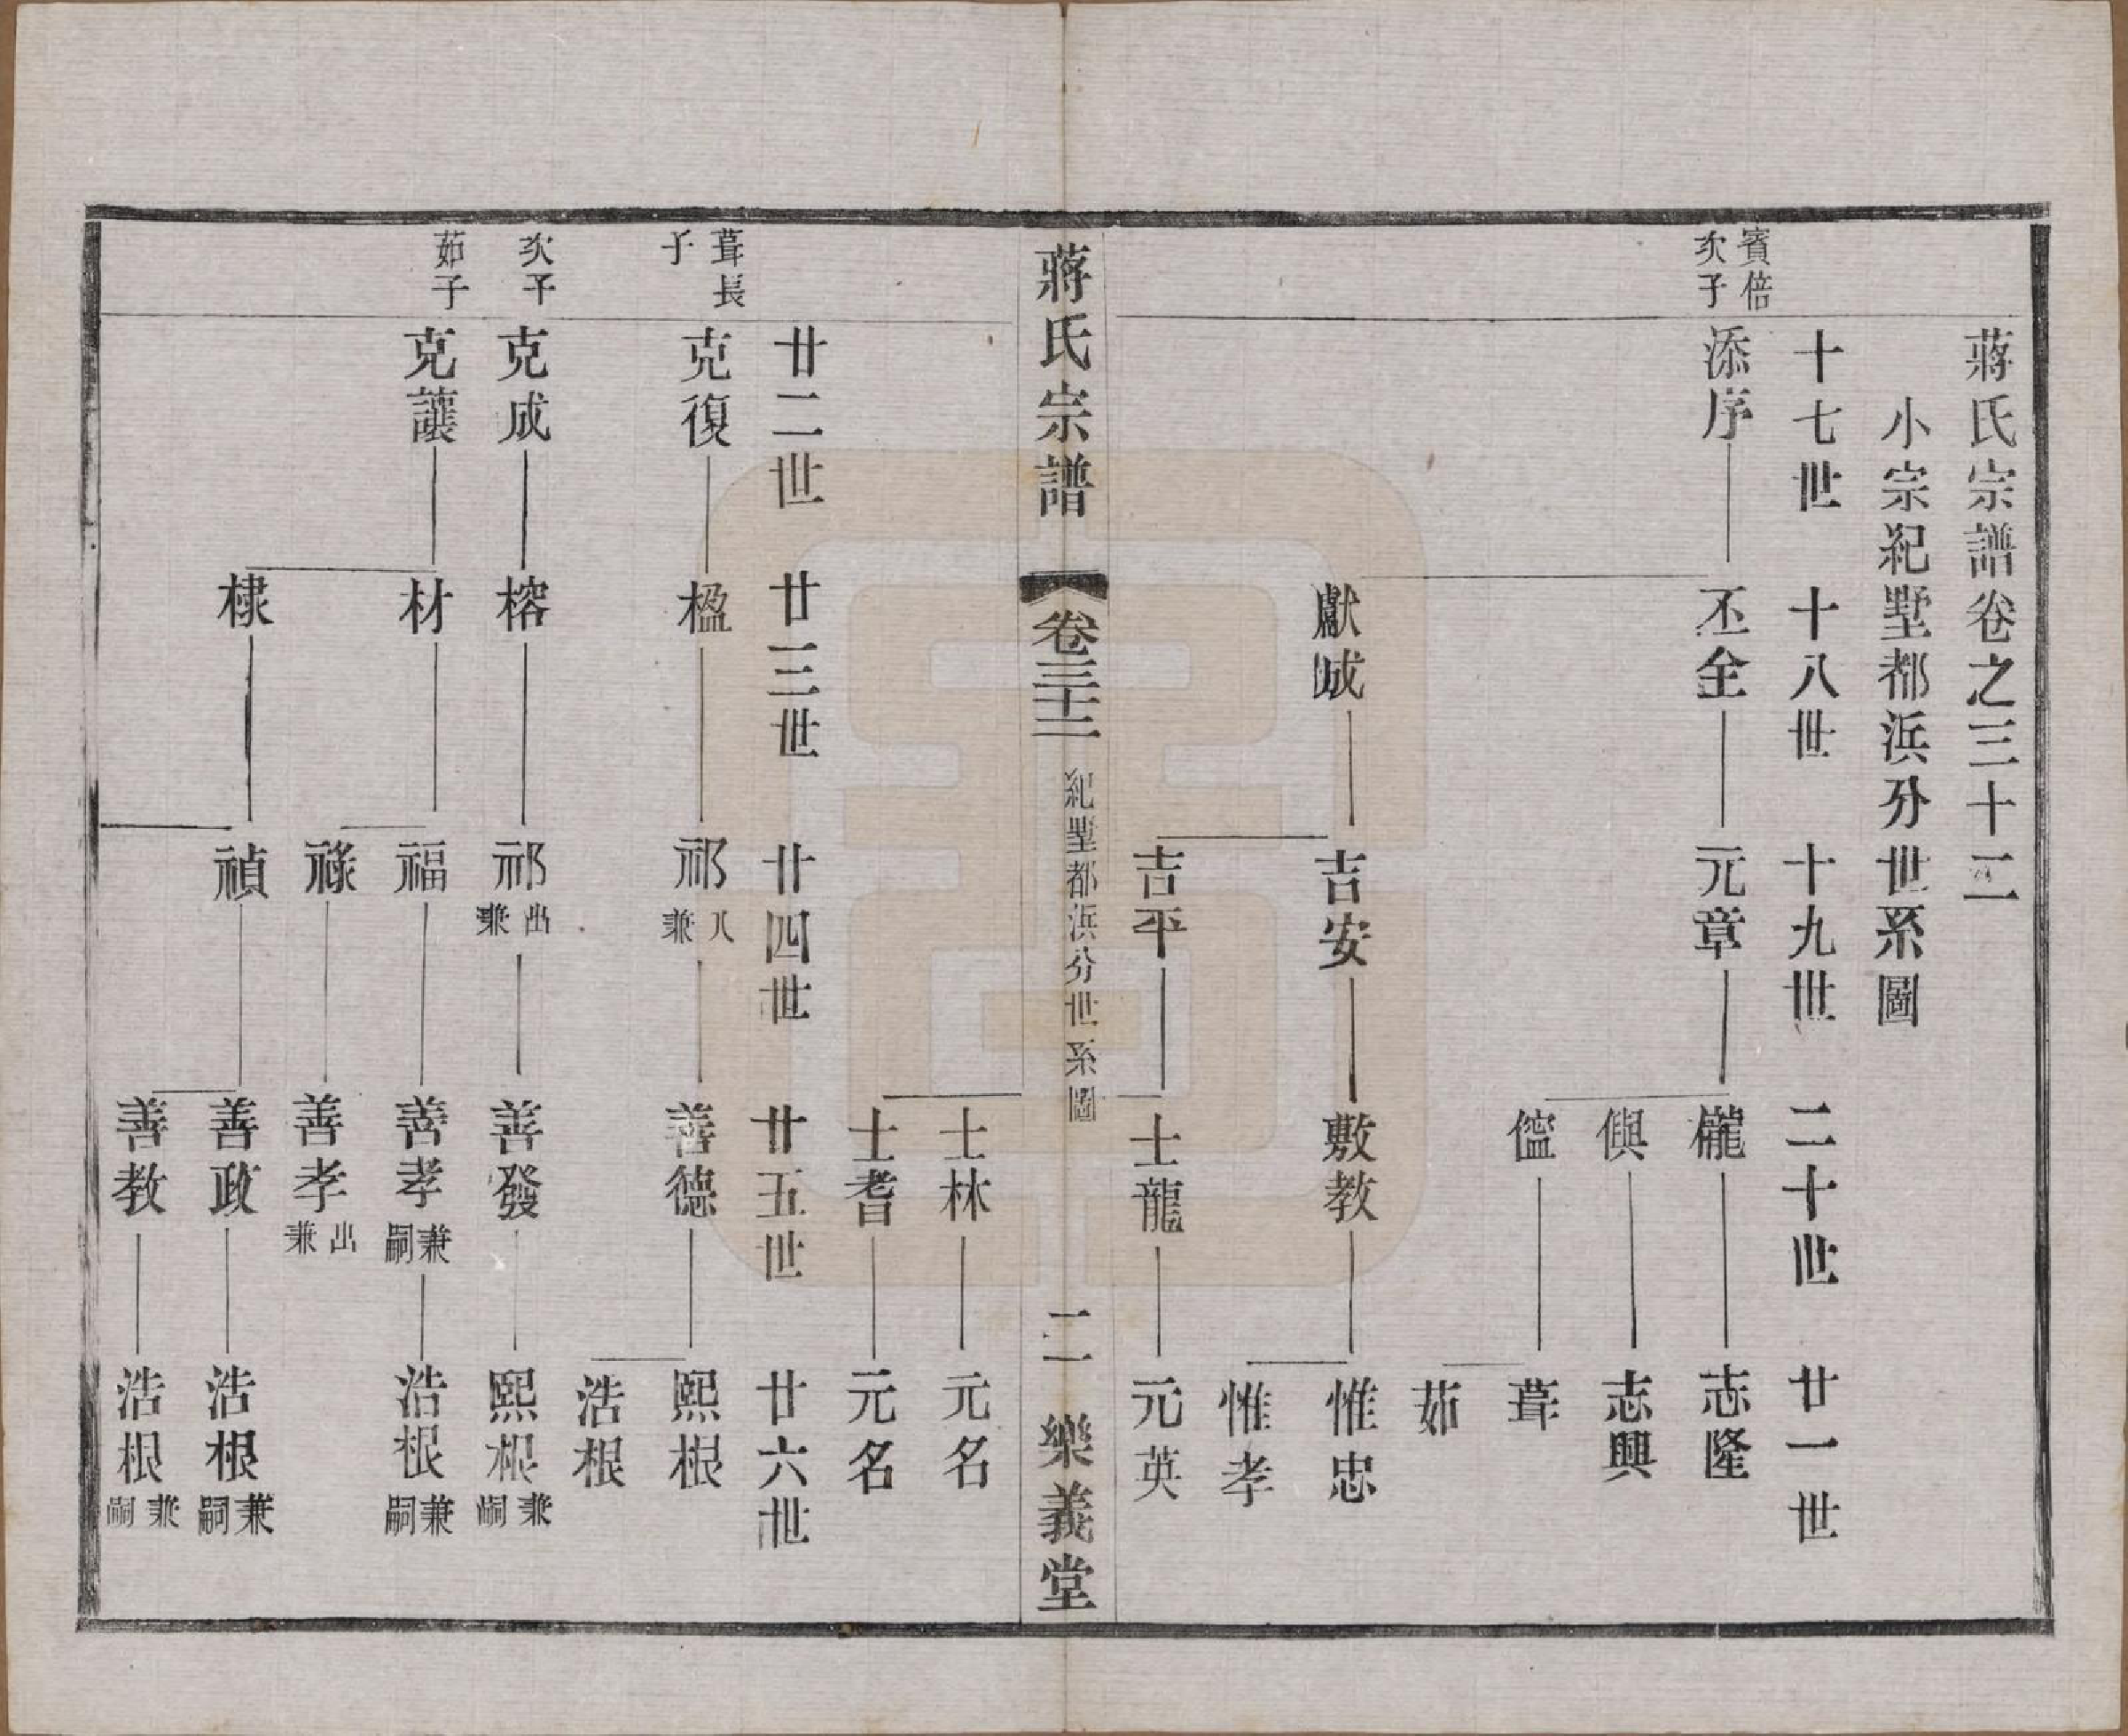 蔣氏宗譜卷之三十二
小宗紀墅都浜分世系圖
十七世 十八世 十九世 二十世 廿一世
賓倍次子 添序 丕全 元章 櫳 志隆
俱 志興
葺
茹
獻誠 吉安 敷教 惟忠
惟孝
吉平 士龍 元英
蔣氏宗譜 卷三十二 紀墅都浜分世系圖 二 樂義堂
士林 元名
士耆 元名
廿二世 廿三世 廿四世 廿五世 廿六世
葺長子 克復 楹 祁 入兼 善德 熙根
浩根
次子 克成 榕 祁 出兼 善發 熙根 兼嗣
茹子 克讓 材 福 善孝 兼嗣 浩根 兼嗣
祿 善孝 出兼
棣 禎 善政 浩根 兼嗣
善教 浩根 兼嗣